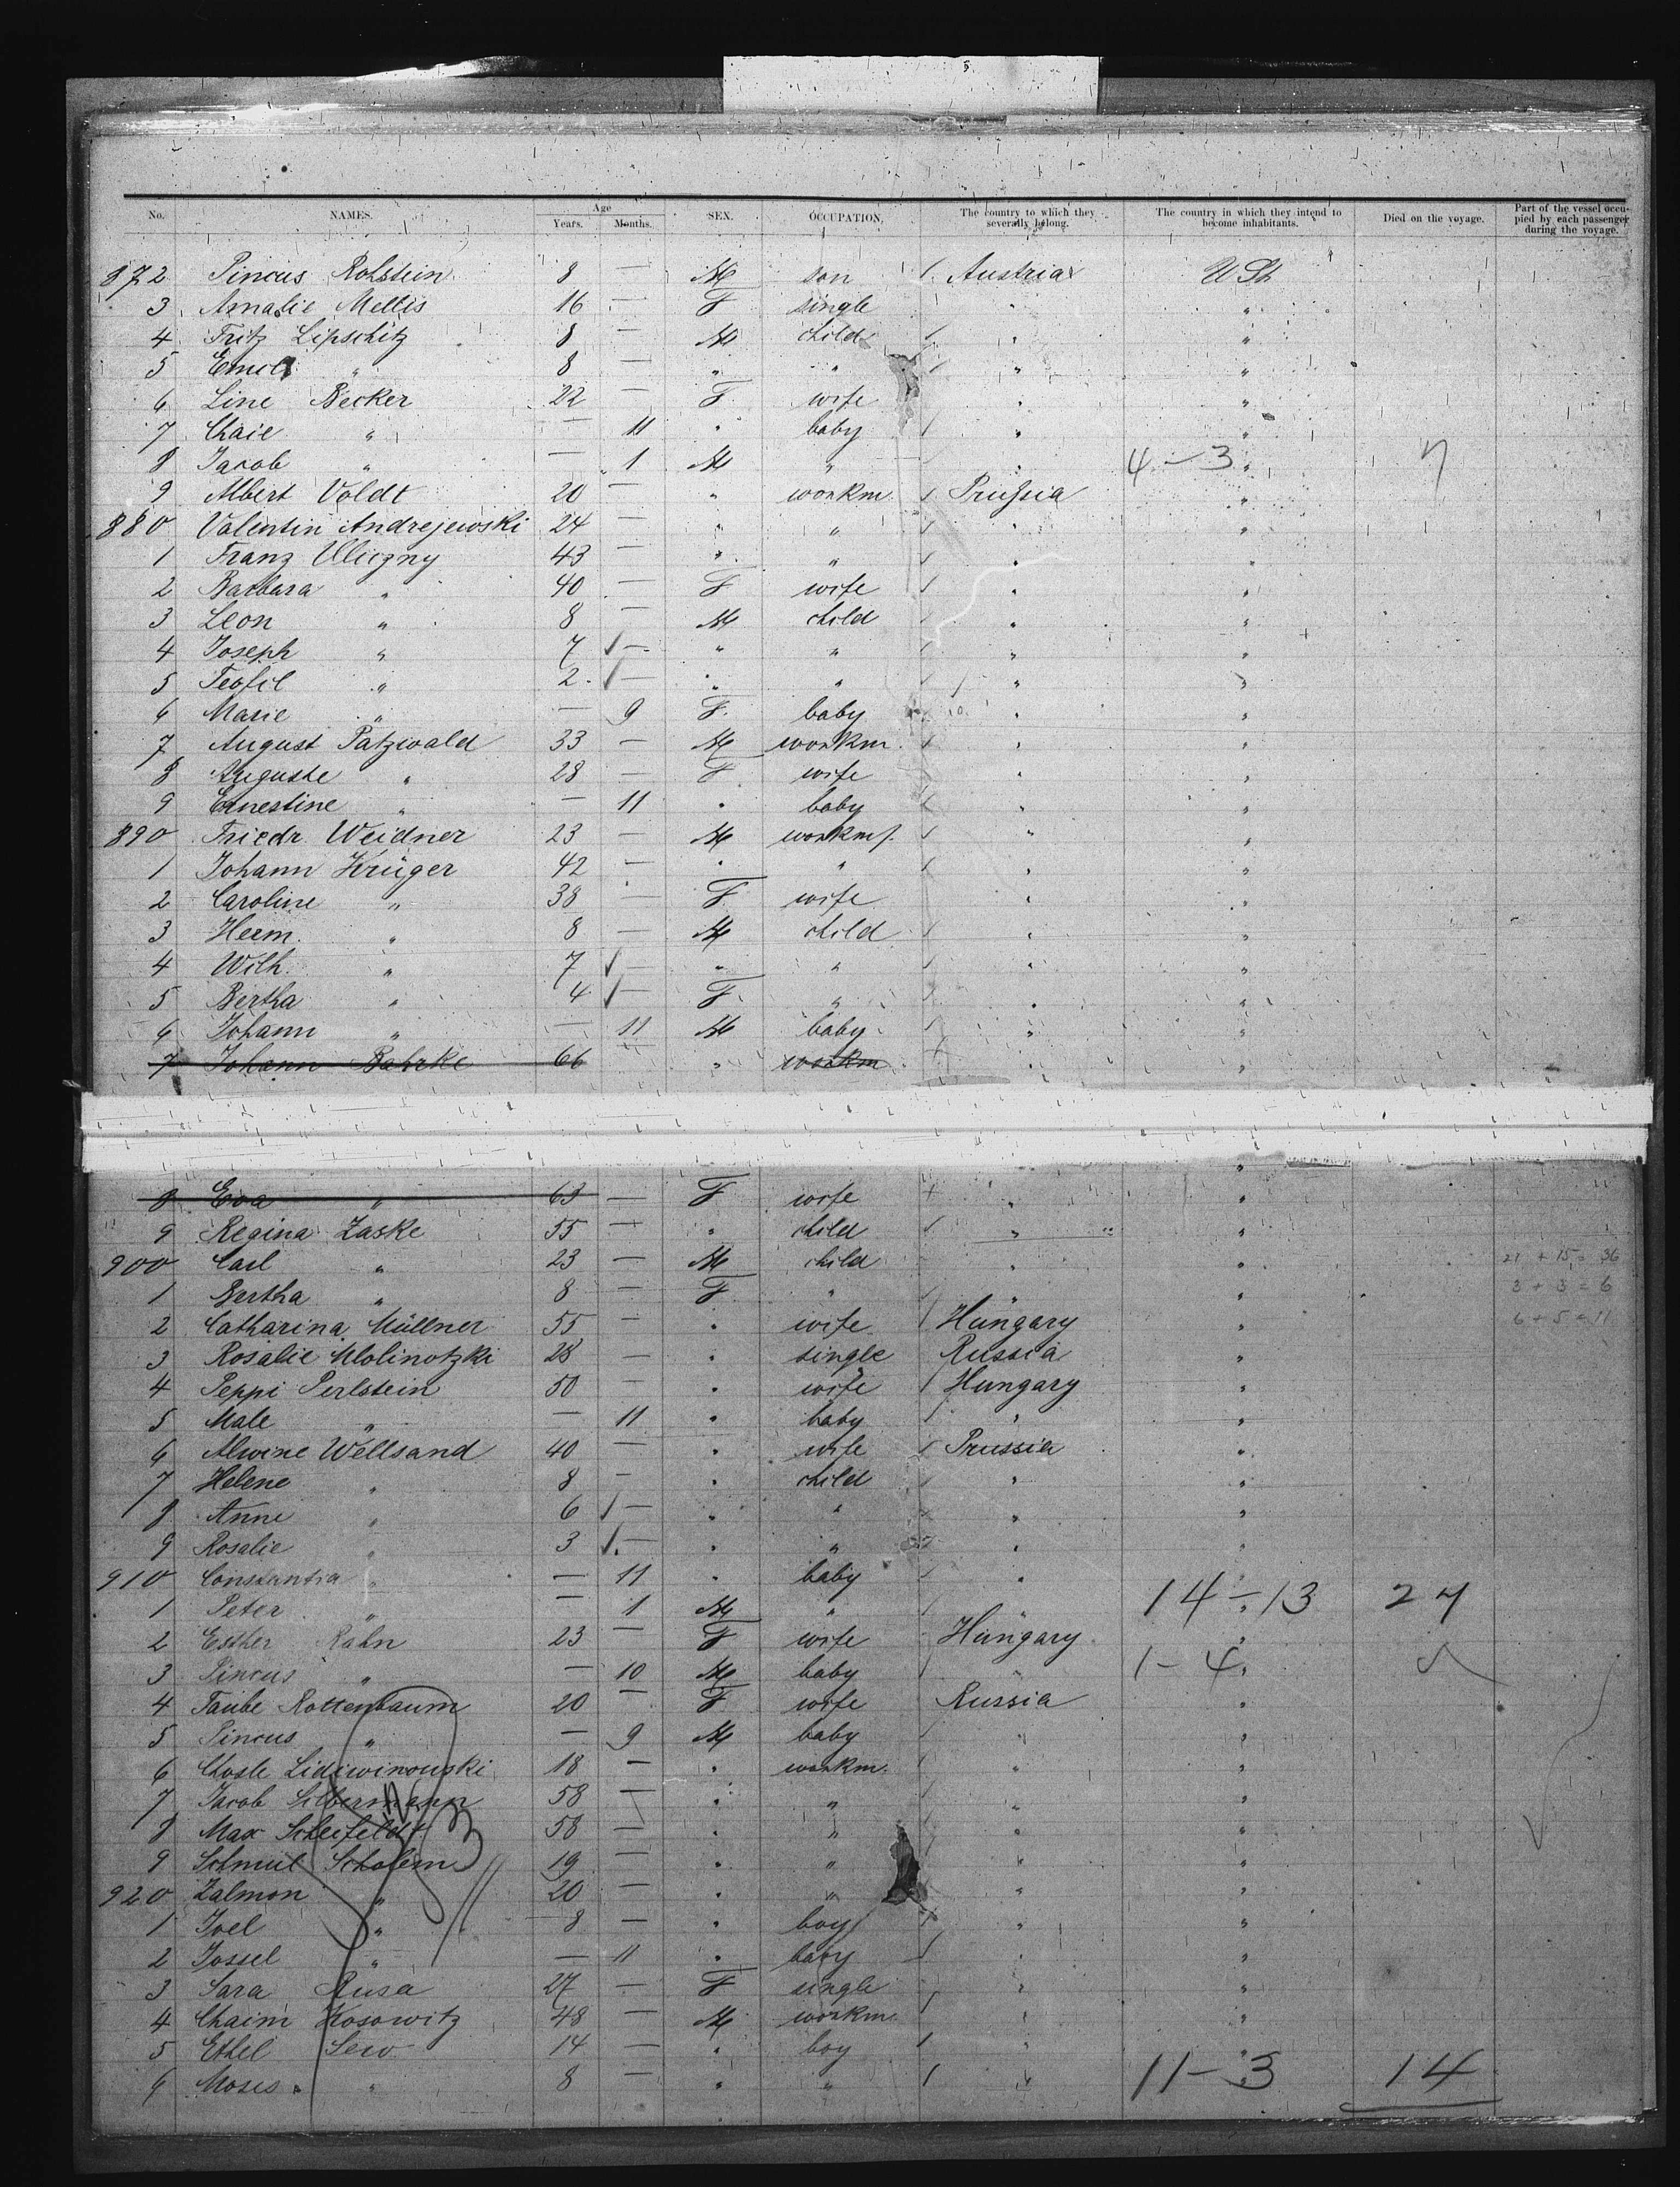 No. NAMES. Age Years. Months. SEX. OCCUPATION. The country to which they severally belong. The country in which they intend to become inhabitants. Died on the voyage. Part of the vessel occupied by each passenger during the voyage.
872 Pincus Rohstein 8 — M son / Austria U St
3 Amalie Mellis 16 — F single " "
4 Fritz Lipschitz 8 — M child / " "
5 Emil " 8 — " " / " "
6 Line Becker 22 — F wife " "
7 Chaie " — 11 " baby / " "
8 Jacob " — 1 M " " 4 - 3 " 7
9 Albert Voldt 20 — " workm. / Prussia "
880 Valentin Andrejewski 24 — " " / " "
1 Franz Uliczny 43 — " " / " "
2 Barbara " 40 — F wife / " "
3 Leon " 8 — M child / " "
4 Joseph " 7 ✓ — " " / " "
5 Teofil " 2 ✓ — " " / " "
6 Marie " — 9 F baby " "
7 August Patzwald 33 — M workm. / " "
8 Auguste " 28 — F wife " "
9 Ernestine " — 11 " baby / " "
890 Friedr. Weidner 23 — M workm. / " "
1 Johann Krüger 42 — " " / " "
2 Caroline " 38 — F wife " "
3 Herm. " 8 — M child / " "
4 Wilh. " 7 ✓ — " " / " "
5 Bertha " 4 ✓ — F " / " "
6 Johann " — 11 M baby / " "
7 Johann Bahrke 66 " workm " "
8 Eva " 63 — F wife " "
9 Regina Zaske 55 — " child / " "
900 Carl " 23 — M child " " 21 + 15 = 36
1 Bertha " 8 — F " / " " 3 + 3 = 6
2 Catharina Müllner 55 — " wife / Hungary " 6 + 5 = 11
3 Rosalie Molinotzki 28 — " single Russia "
4 Peppi Perlstein 50 — " wife / Hungary "
5 Male " — 11 " baby / " "
6 Alwine Wellsand 40 — " wife / Prussia "
7 Helene " 8 — " child / " "
8 Anne " 6 ✓ — " " " "
9 Rosalie " 3 ✓ — " " " "
910 Constantia " — 11 " baby / " "
1 Peter " — 1 M " / " 14 - 13 27
2 Esther Rahn 23 — F wife Hungary "
3 Pincus " — 10 M baby / " 1 - 4 5
4 Taube Rottenbaum 20 — F wife Russia "
5 Pincus " — 9 M baby / " "
6 Chosle Lidiwinowski 18 — " workm. / " "
7 Jacob Silbermann 58 — " " / " "
8 Max Scheifeldt 58 — " " / " "
9 Schmul Scholem 19 — " " " "
920 Zalmon " 20 — " " " "
1 Joel " 8 — " boy / " "
2 Jossel " — 11 " baby / " "
3 Sara Rusa 27 — F single " "
4 Chaim Kosowitz 48 — M workm. / " "
5 Ethel Lew 14 — " boy / " "
6 Moses " 8 — " " / " 11 - 3 14